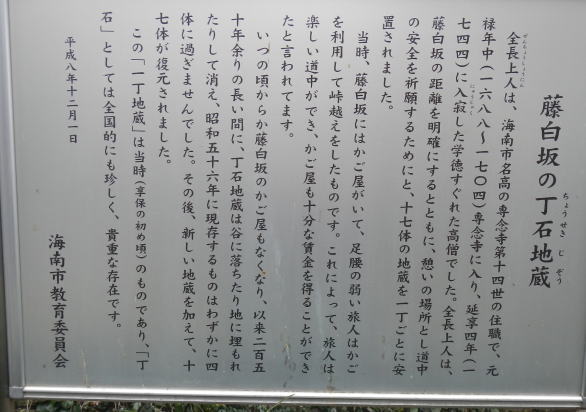 藤白坂の丁石地蔵
ちょうせきじぞう
ぜんちょうしょうにん
全長上人は、海南市名高の専念寺第十四世の住職で、元
禄年中（一六八八～一七〇四）専念寺に入り、延享四年（一
七四四）に入寂した学徳すぐれた高僧でした。全長上人は、
にゅうじゃく
藤白坂の距離を明確にするとともに、憩いの場所とし道中
の安全を祈願するためにと、十七体の地蔵を一丁ごとに安
置されました。
当時、藤白坂にはかご屋がいて、足腰の弱い旅人はかご
を利用して峠越えをしたものです。これによって、旅人は
楽しい道中ができ、かご屋も十分な賃金を得ることができ
たと言われてます。
いつの頃からか藤白坂のかご屋もなくなり、以来二百五
十年余りの長い間に、丁石地蔵は谷に落ちたり地に埋もれ
たりして消え、昭和五十六年に現存するものはわずかに四
体に過ぎませんでした。その後、新しい地蔵を加えて、十
七体が復元されました。
この「一丁地蔵」は当時（享保の初め頃）のものであり、「丁
石」としては全国的にも珍しく、貴重な存在です。
平成八年十二月一日
海南市教育委員会